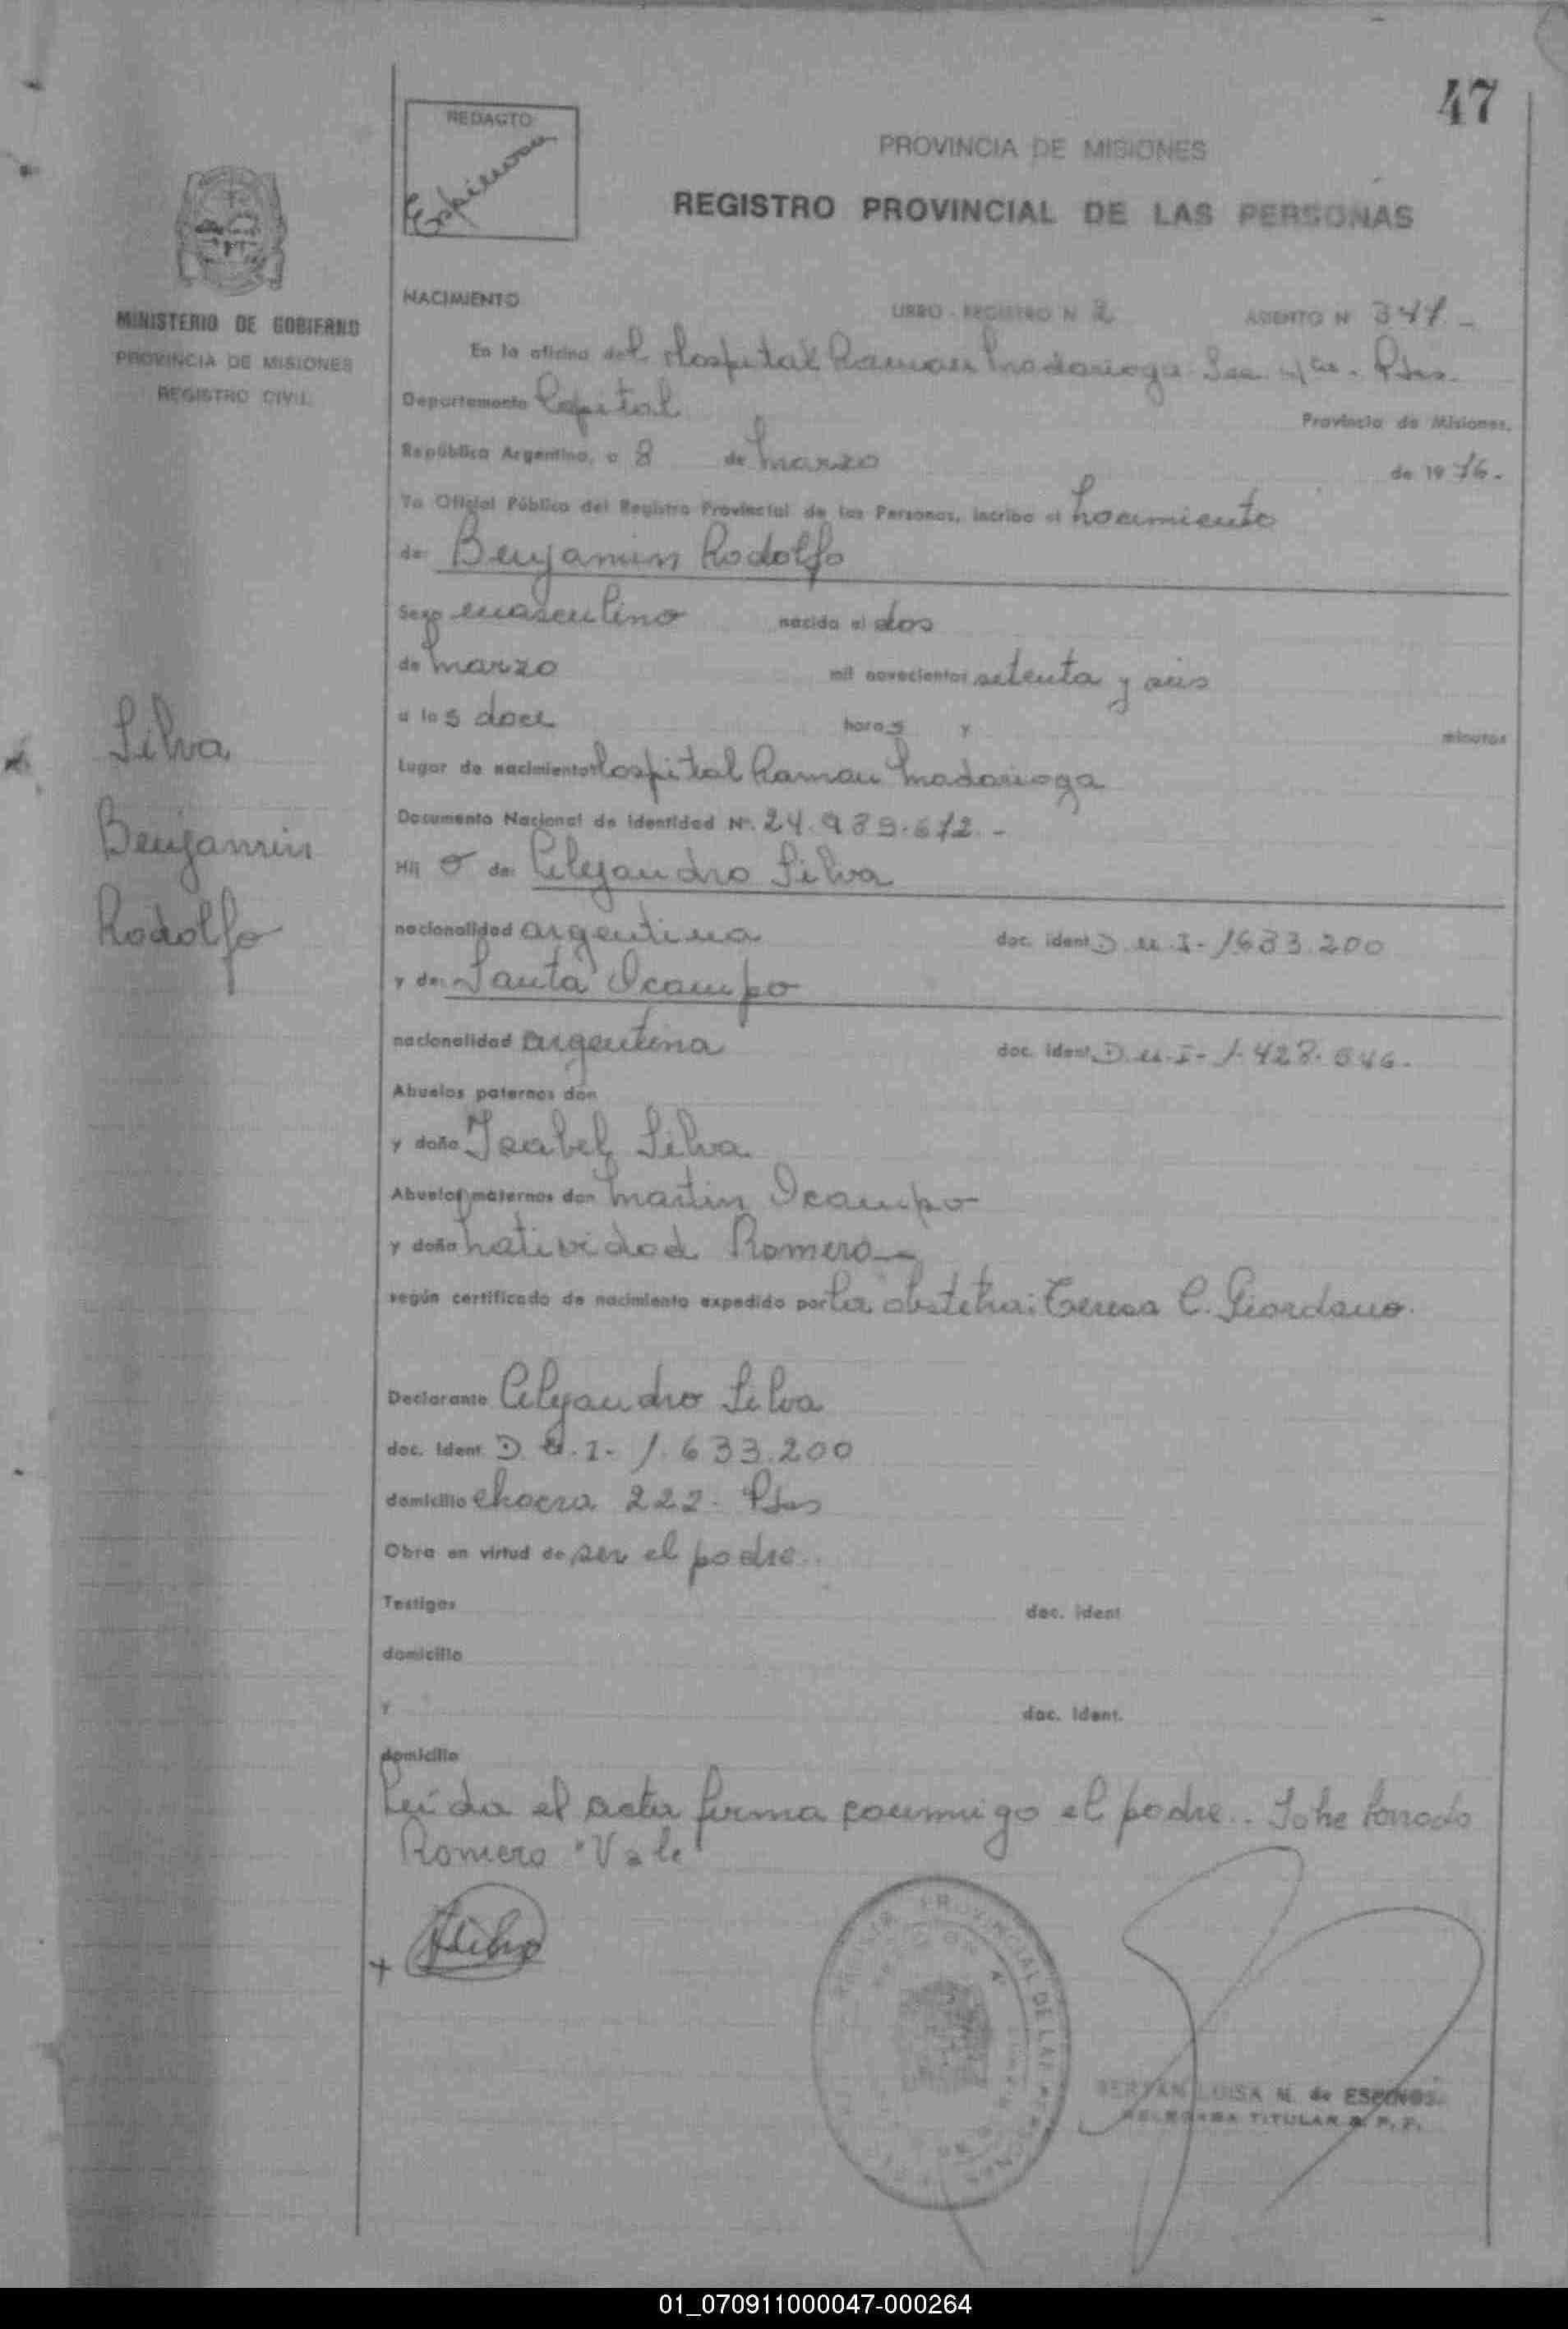 47
REDACTO
PROVINCIA DE MISIONES
REGISTRO PROVINCIAL DE LAS PERSONAS
MINISTERIO DE GOBIERNO
PROVINCIA DE MISIONES
REGISTRO CIVIL
NACIMIENTO
LIBRO - REGISTRO N 2 ASIENTO N 347 -
En la oficina del Hospital Ramon Madariaga Pdas.
Departamento Capital
Provincia de Misiones,
República Argentina, a 8 de Marzo de 1976.
Yo Oficial Público del Registro Provincial de las Personas, incribo el Nacimiento
de: Benjamin Rodolfo
Sexo masculino nacido el dos
de Marzo mil novecientos setenta y seis
a las doce horas y minutos
Lugar de nacimiento Hospital Ramon Madariaga
Documento Nacional de identidad Nº. 24.939.672.-
Hij o de: Alejandro Silva
nacionalidad argentina doc. ident D.N.I- 1.633.200
y de: Santa Ocampo
nacionalidad argentina doc. ident D.N.I- 1.428.546.
Abuelos paternos don
y doña Isabel Silva
Abuelos maternos don Martin Ocampo
y doña Natividad Romero
según certificado de nacimiento expedido por la obstetra: Teresa C. Giordano.
Declarante Alejandro Silva
doc. Ident D.N.I- 1.633.200
domicilio chacra 222. Pdas
Obra en virtud de ser el padre.
Testigos doc. ident
domicilio
Y doc. Ident.
domicilio
Leida el acta firma conmigo el padre.. Sobre borrado
Romero "Vale"
Silva
Benjamin
Rodolfo
LUISA M. de
TITULAR
01_070911000047-000264